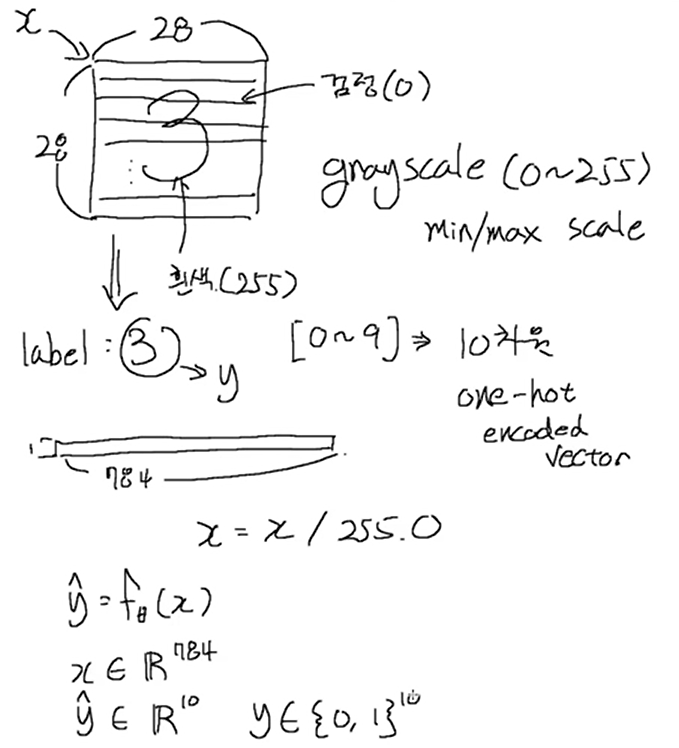 x
28
28
3
검정(0)
⋮
grayscale (0~255)
min/max scale
흰색(255)
label : 3 → y
[0~9] ⇒ 10차원
one-hot
encoded
vector
1
784
x = x / 255.0
ŷ = f_θ(x)
x ∈ ℝ^784
ŷ ∈ ℝ^10 y ∈ {0, 1}^10